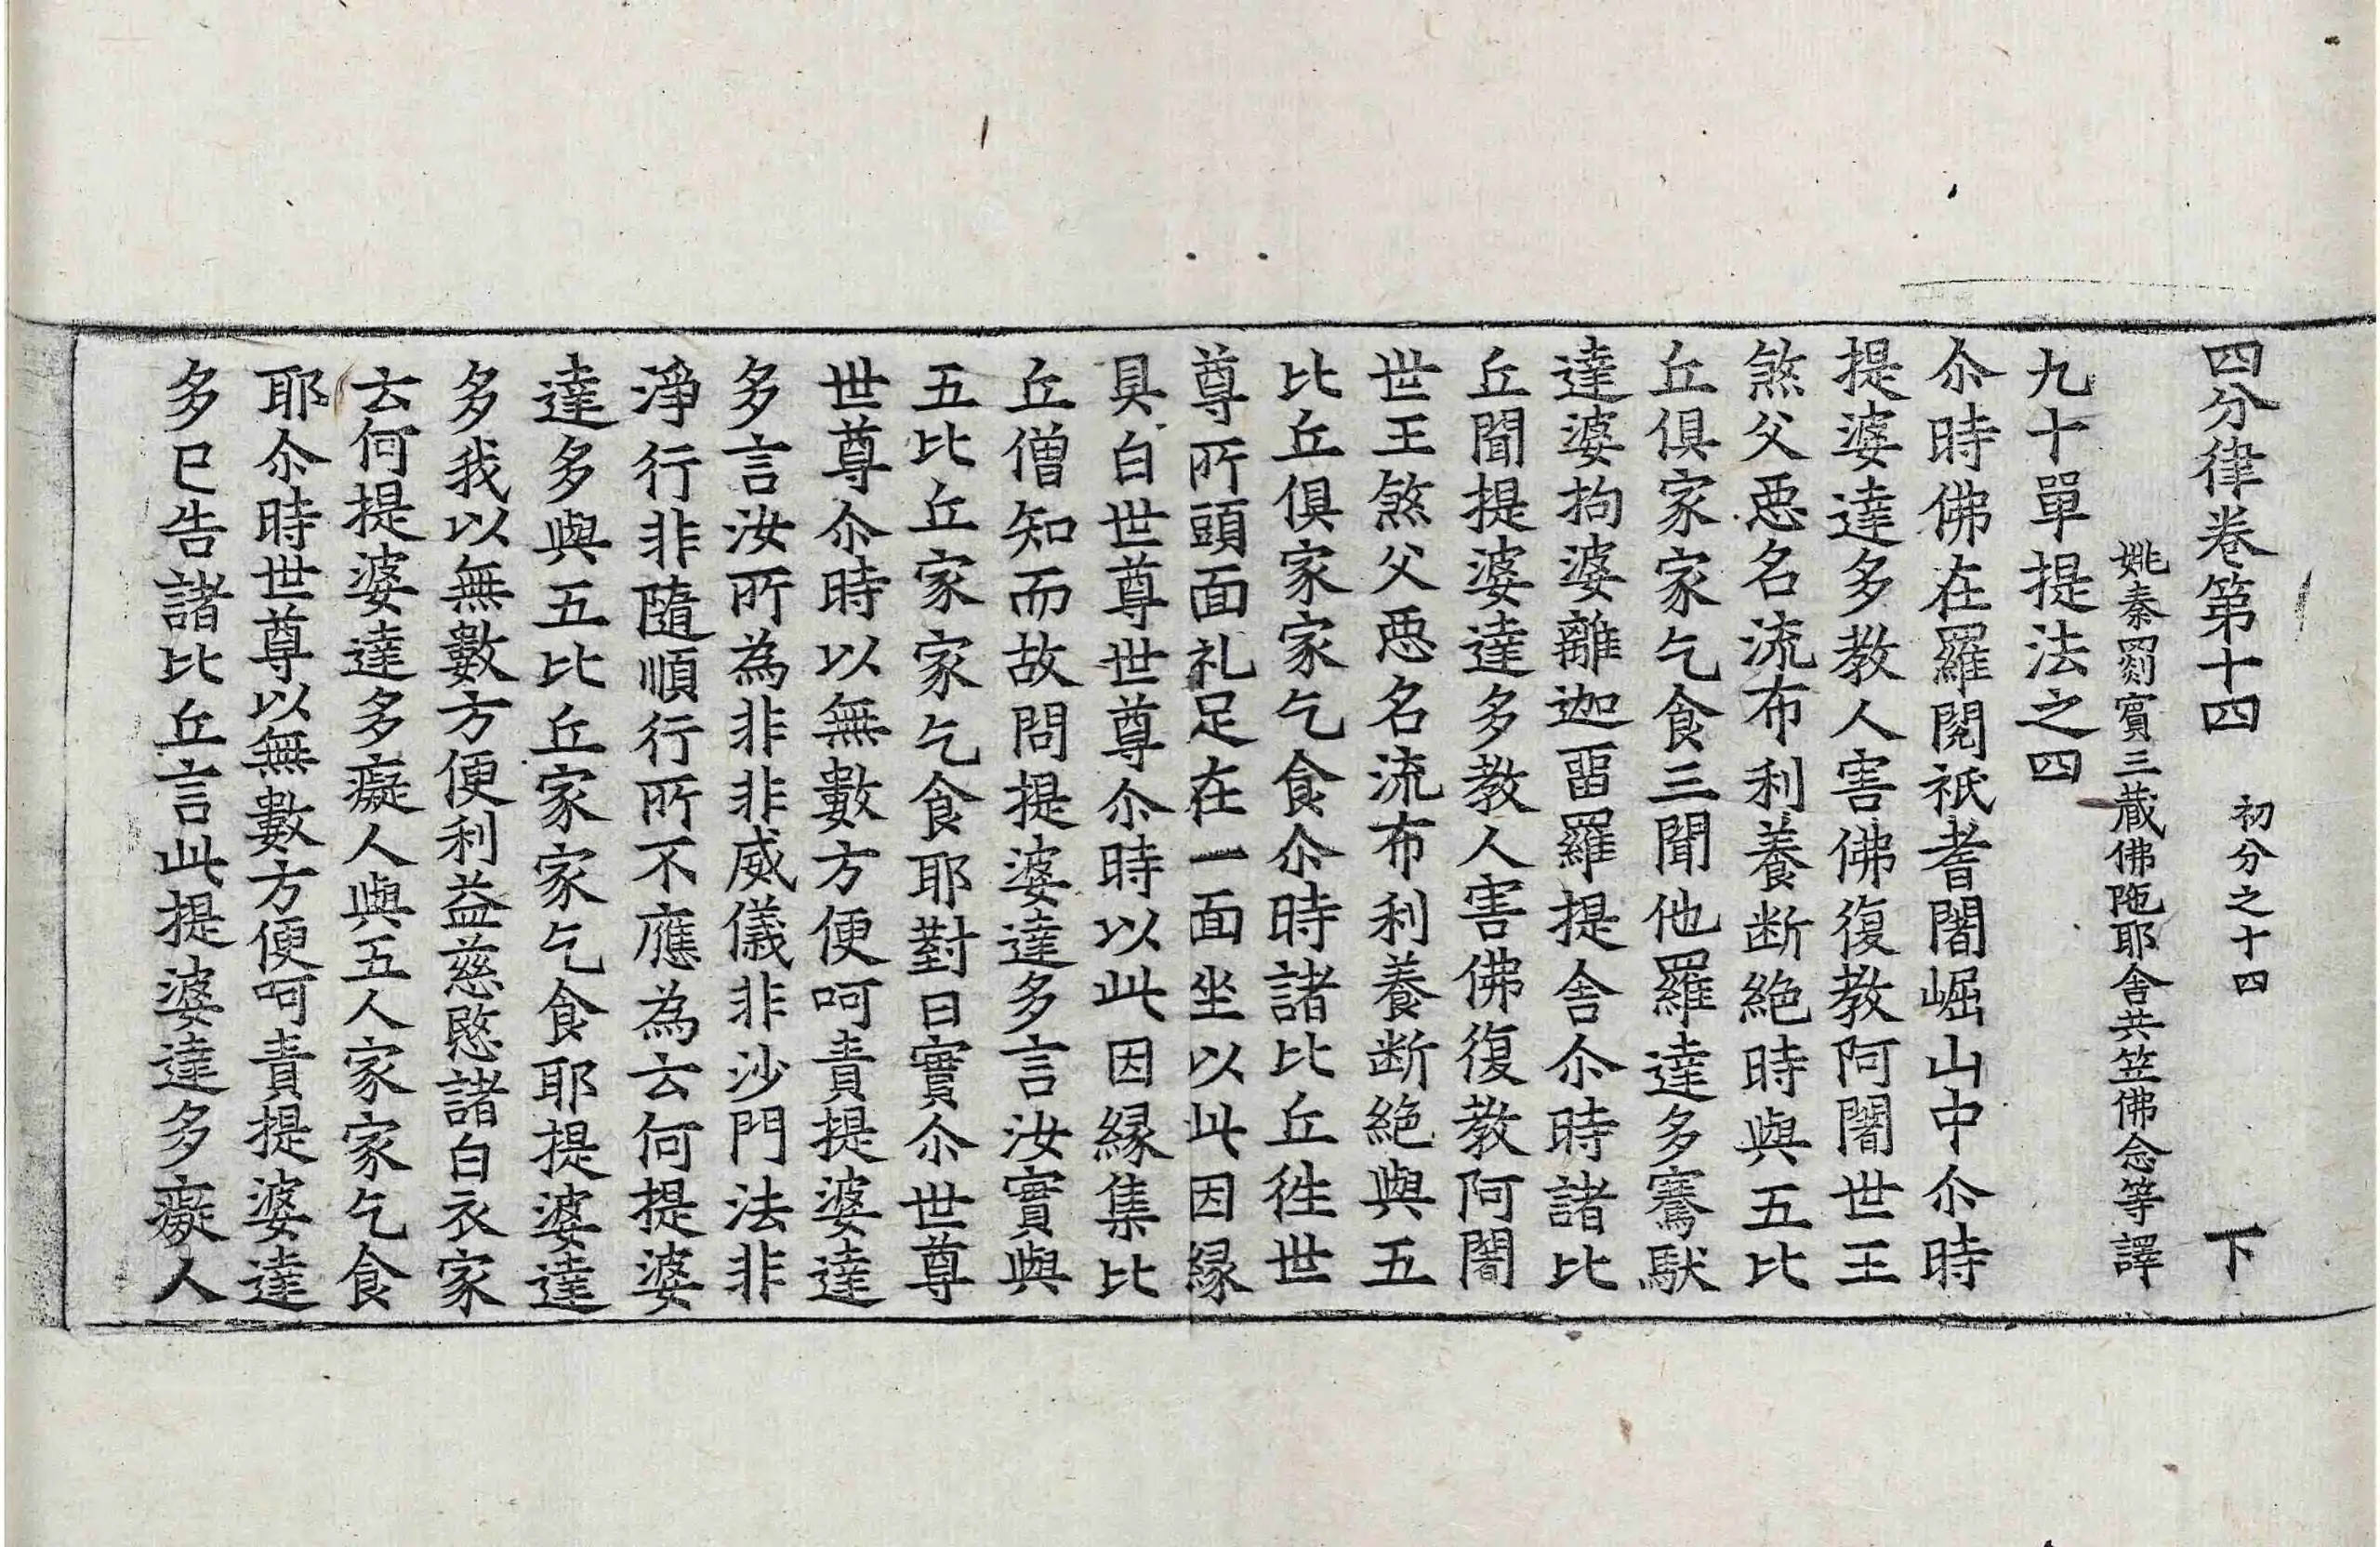 四分律卷第十四 初分之十四 下
姚秦罽賓三藏佛陁耶舍共笠佛念等譯
九十單提法之四
尒時佛在羅閱祇耆闍崛山中尒時
提婆達多教人害佛復教阿闍世王
煞父惡名流布利養断絶時與五比
丘俱家家乞食三聞他羅達多騫馱
達婆拘婆離迦畱羅提舍尒時諸比
丘聞提婆達多教人害佛復教阿闍
世王煞父惡名流布利養断絶與五
比丘俱家家乞食尒時諸比丘徃世
尊所頭面礼足在一面坐以此因緣
具白世尊世尊尒時以此因緣集比
丘僧知而故問提婆達多言汝實與
五比丘家家乞食耶對曰實尒世尊
世尊尒時以無數方便呵責提婆達
多言汝所為非非威儀非沙門法非
淨行非隨順行所不應為云何提婆
達多與五比丘家家乞食耶提婆達
多我以無數方便利益慈愍諸白衣家
云何提婆達多癡人與五人家家乞食
耶尒時世尊以無數方便呵責提婆達
多已告諸比丘言此提婆達多癡人